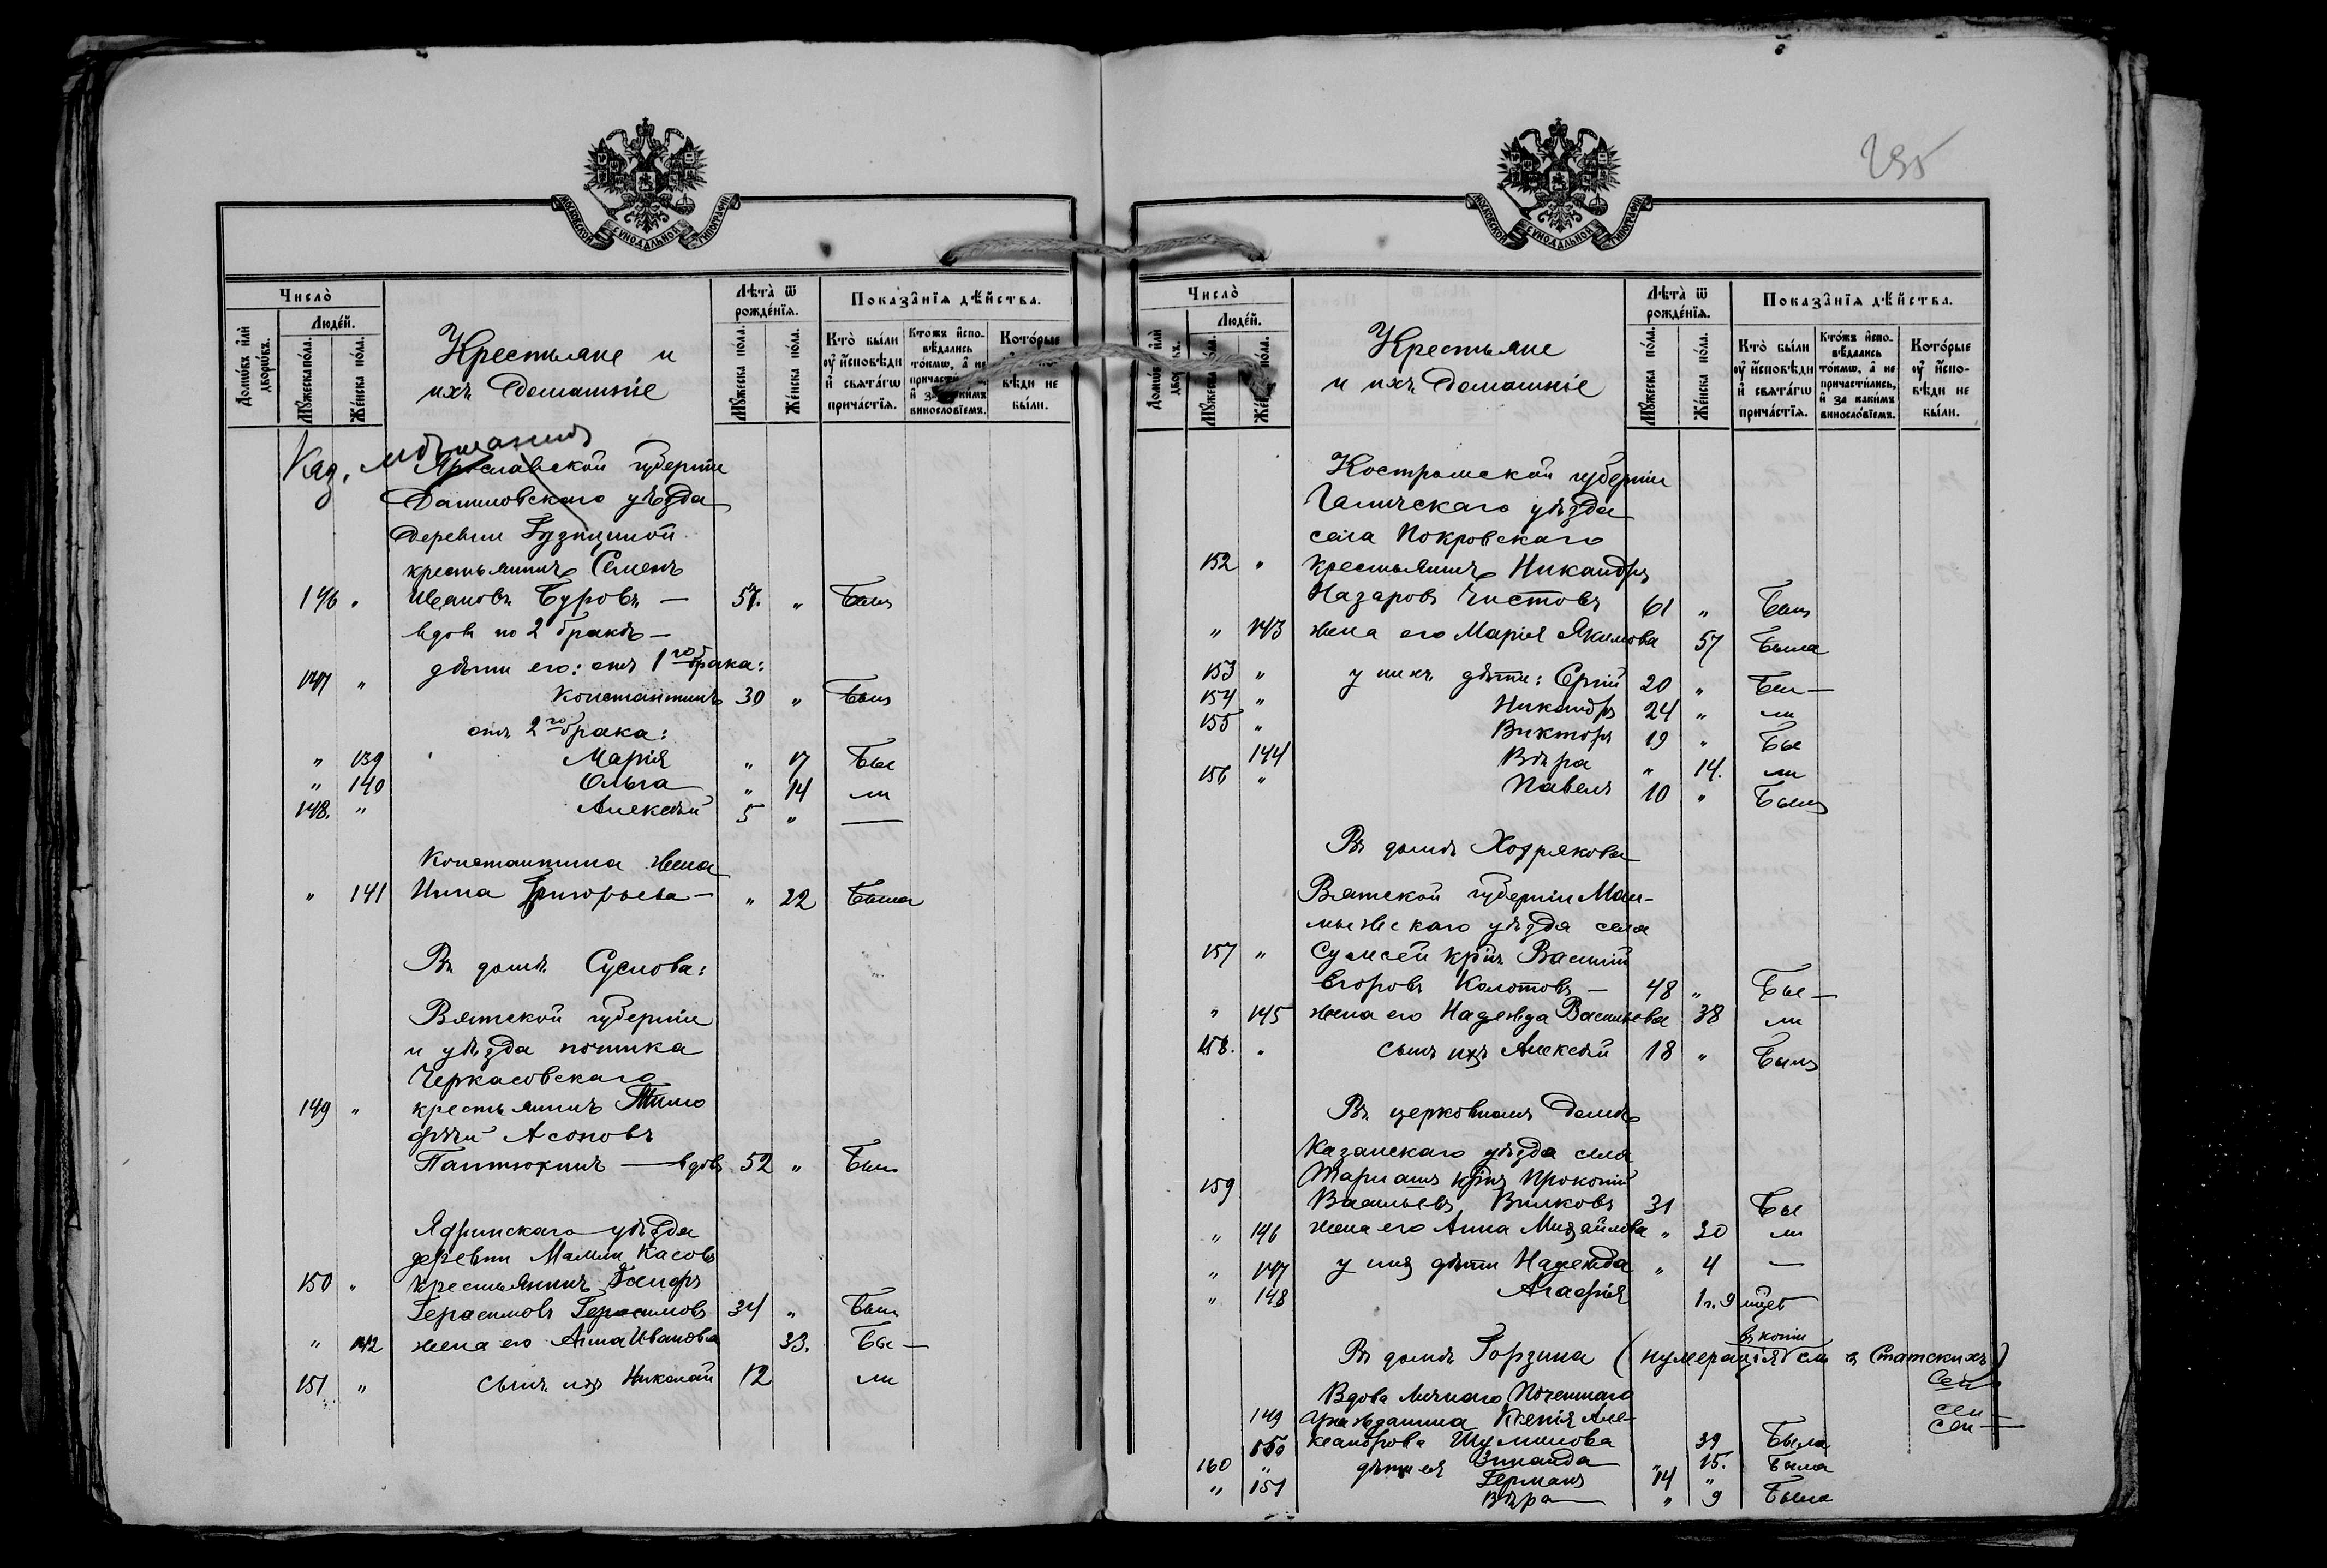 МОСКОВСКОЙ СѴНОДАЛЬНОЙ ТИПОГРАФІИ
Число̀
Людéй.
Домѡ́въ и҆лѝ дворѡ́въ.
Мꙋ́жеска по́ла.
Же́нска по́ла.
Крестьяне и
ихъ домашніе
Лѣта̀ ѿ рожде́нїѧ.
Мꙋ́жеска по́ла.
Же́нска по́ла.
Показа̑нїѧ дѣ́йства.
Кто̀ были ᲂу҆ и҆́сповѣди и҆ свѧта́гѡ прича́стїѧ.
Кто́жъ и҆спо-вѣ́дались то́кмѡ, а҆ не причасти́лись, и҆ за каки́мъ винослѡ́вїемъ.
Кото́рые ᲂу҆ и҆́спо-вѣди не бы́ли.
Каз. мѣщанинъ
Ярославской губерніи
Даниловскаго уѣзда
деревни Гузициной
крестьянинъ Семенъ
146 " Ивановъ Буровъ — 57. " Былъ
вдовъ по 2 бракѣ —
дѣти его: отъ 1го брака:
147 " Константинъ 30 " Былъ
отъ 2го брака:
" 139 Марія " 17 Бы
" 140 Ольга " 14 ли
148. " Алексѣй 5 " —
Константина жена
" 141 Инна Григорьева — " 22 Была
Въ домѣ Суслова:
Вятской губерніи
и уѣзда починка
Черкасовскаго
149 " крестьянинъ Тимо
фѣй Асоновъ
Пантюхинъ — вдовъ 52 " Былъ
Ядринскаго уѣзда
деревни Малыи Касовъ
150 " крестьянинъ
Герасимовъ Герасимовъ 34 " Былъ
" 142 жена его Анна Иванова 33. Бы —
151 " сынъ ихъ Николай 12 ли
МОСКОВСКОЙ СѴНОДАЛЬНОЙ ТИПОГРАФІИ
Число̀
Людéй.
Домѡ́въ и҆лѝ дворѡ́въ.
Мꙋ́жеска по́ла.
Же́нска по́ла.
Крестьяне
и ихъ домашніе
Лѣта̀ ѿ рожде́нїѧ.
Мꙋ́жеска по́ла.
Же́нска по́ла.
Показа̑нїѧ дѣ́йства.
Кто̀ были ᲂу҆ и҆́сповѣди и҆ свѧта́гѡ прича́стїѧ.
Кто́жъ и҆спо-вѣ́дались то́кмѡ, а҆ не причасти́лись, и҆ за каки́мъ винослѡ́вїемъ.
Кото́рые ᲂу҆ и҆́спо-вѣди не бы́ли.
Костромской губерніи
Галичскаго уѣзда
села Покровскаго
152 " крестьянинъ Никандръ
Назаровъ Чистовъ 61 " Былъ
" 143 жена его Марія Якимова 57 Была
153 " у нихъ дѣти: Сергій 20 " Бы —
154 " Никандръ 24 " ли
155 " Викторъ 19 " Бы
144 Вѣра " 14. ли
156 " Павелъ 10 " Былъ
Въ домѣ Хохрякова
Вятской губерніи Мал-
мыжскаго уѣзда села
157 " Сумсей кр҃нъ Василій
Егоровъ Колотовъ — 48 " Бы —
" 145 жена его Надежда Васильева 38 ли
158. " сынъ ихъ Алексѣй 18 " Былъ
Въ церковномъ домѣ
Казанскаго уѣзда села
159 кр҃нъ Прокопій
Васильевъ Вилковъ 31 Бы
" 146 жена его Анна Михайлова " 30 ли
" 147 у нихъ дѣти Надежда " 4 —
" 148 Агафія 1 г. 9 мцев
въ копіи
Въ домѣ Горзина (нумерація въ Статскихъ)
Вдова личнаго Почетнаго
149 гражданина Ксенія Але-
ксандрова Шумилова 39 Была
150 дѣти ея Зинаида " 15. Была
160 " Германъ 14 "
" 151 Вѣра — " 9 Была